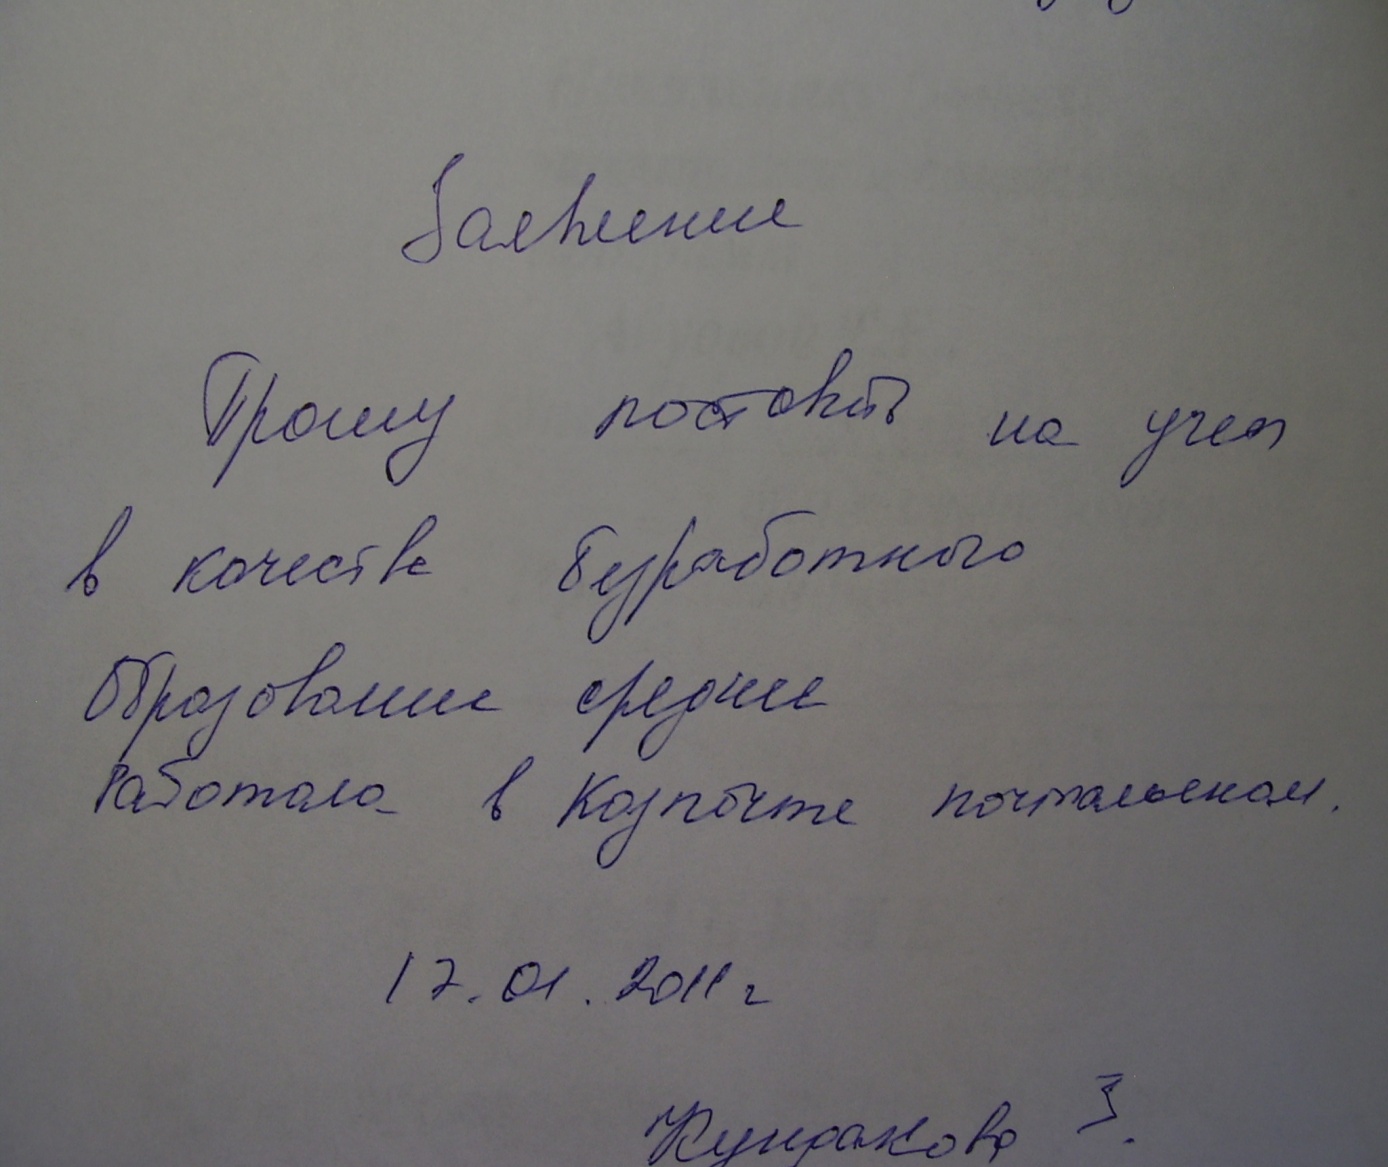 Заявление
Прошу поставить на учет
в качестве безработного
Образование среднее
Работала в Казпочте почтальоном.
17.01.2011 г
З.